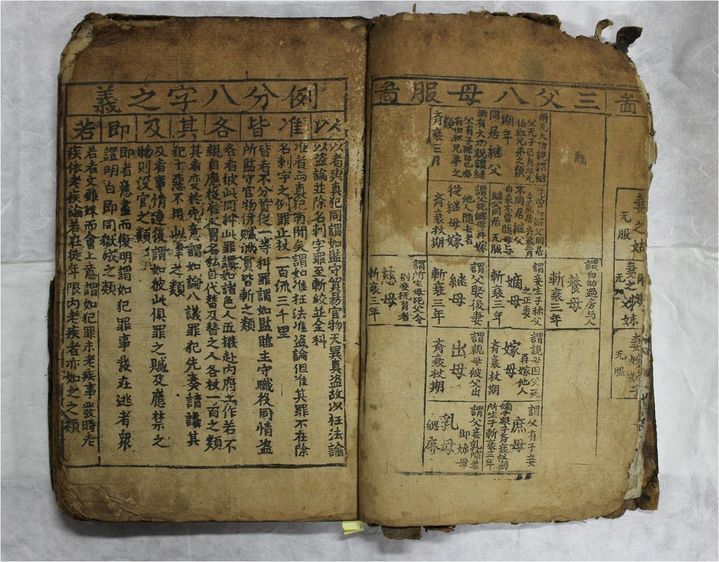 啚
妻之姑
无服
妻之姊妹
无服
三父八母服啚
同居繼父
期年
齊衰三月
不同居繼父
无服
從繼母嫁
謂父死繼母再嫁
他人隨去者
齊衰杖期
養母
謂自幼過房与人
斬衰三年
嫡母
謂妾生子稱父
之正妻
斬衰三年
繼母
謂父娶後妻
斬衰三年
慈母
謂所生母死父令
別妾撫育者
斬衰三年
嫁母
謂親母因父死
再嫁他人
齊衰杖期
出母
謂親母被父出
齊衰杖期
庶母
謂父有子妾
嫡子衆子齊衰杖期
所生子斬衰三年
乳母
謂父妾乳哺者
即奶母
緦麻
例分八字之義
以准皆各其及即若
以者與真犯同謂如監守貿易官物无異真盗故以枉法論
以盗論並除名刺字罪至斬絞並全科
准者與真犯有間矣謂如准枉法准盗論但准其罪不在除
名刺字之例罪止杖一百流三千里
皆者不分首從一等科罪謂如監臨主守職役同情盗
所監守官物併贓滿貫皆斬之類
各者彼此同科此罪謂如諸色人匠撥赴内府工作若不
親自應役雇人冒名私自代替及替之人各杖一百之類
其者变於先意謂如論八議罪犯先奏請議其
犯十惡不用此律之類
及者事情連後謂如彼此俱罪之贓及應禁之
物則没官之類
即者意盡而復明謂如犯罪事發在逃者衆
證明白即同獄成之類
若者文雖殊而會上意謂如犯罪未老疾事發時老
疾依老疾論若在徒年限内老疾者亦如之之類